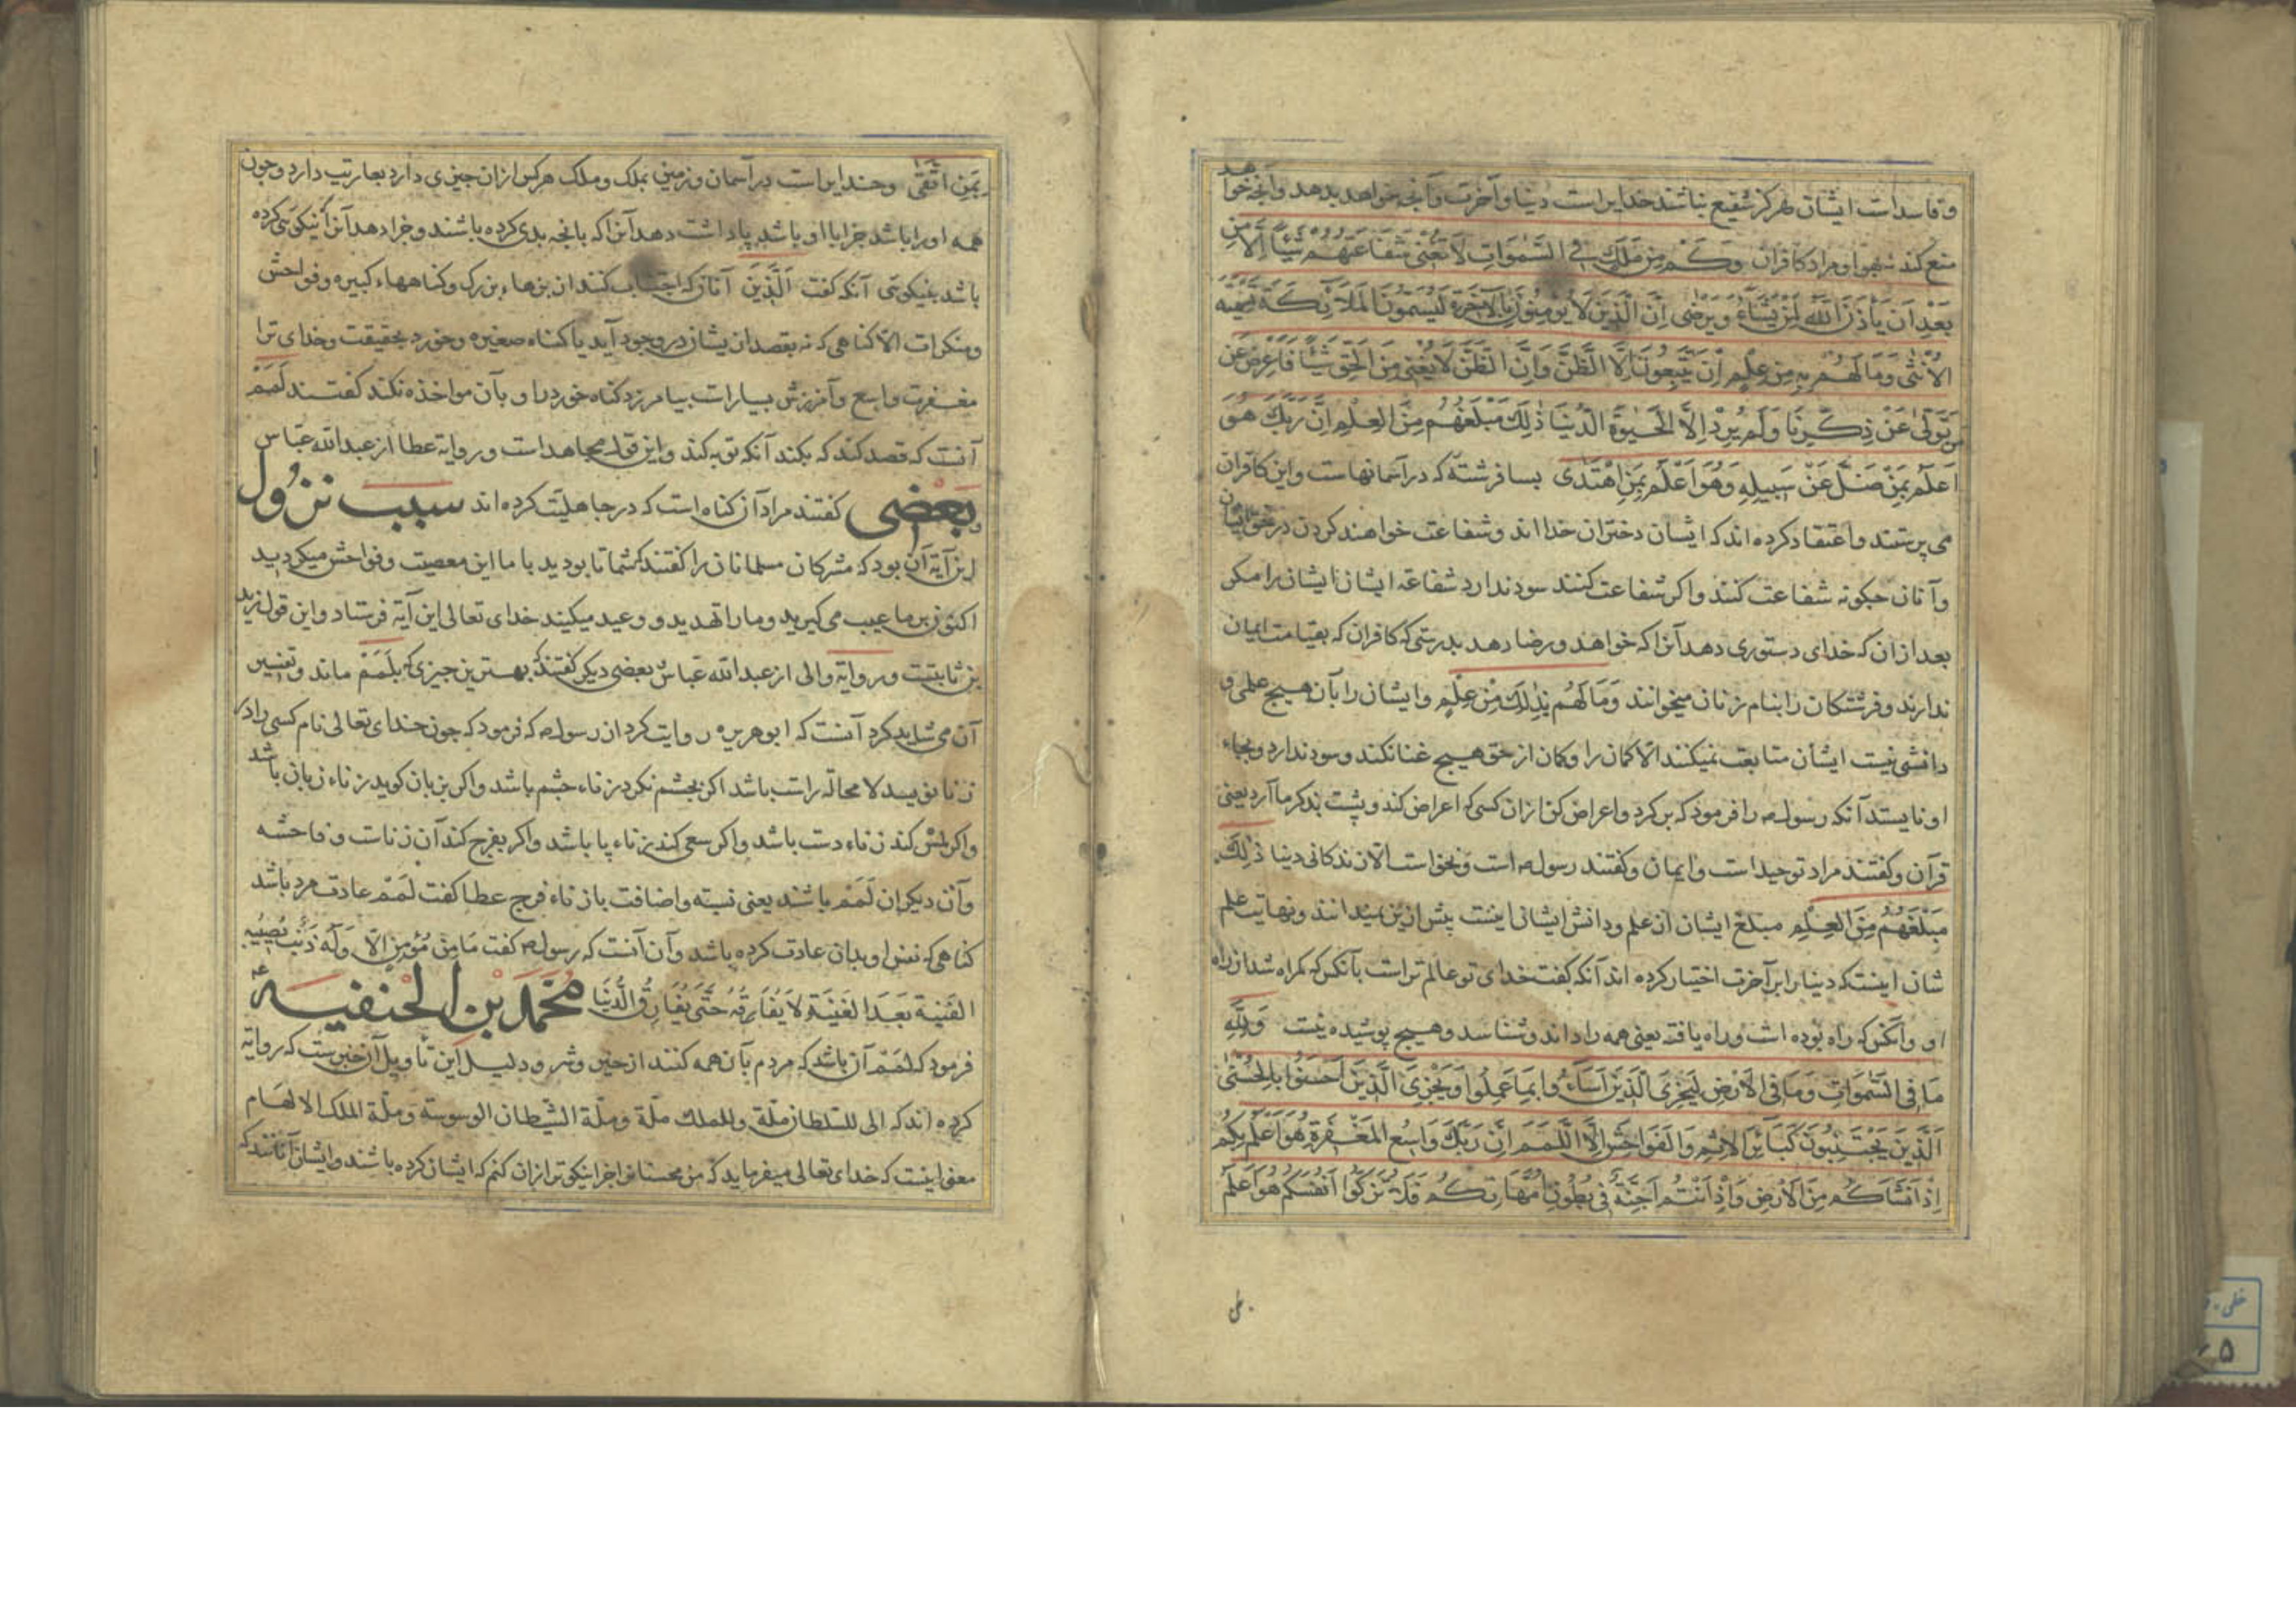 و فاسداست ایشان هرکز شفیع نباشند خدایراست دنیا و آخرت و آنجه خواهد بدهد وانجه خواهد
منع کند نه بهوا و مراد کافران وَكَمْ مِنْ مَلَكٍ فِي السَّمَوَاتِ لَا تُغْنِي شَفَاعَتُهُمْ شَيْئًا إِلَّا مِنْ
بَعْدِ اَنْ يَأْذَنَ اللّٰهُ لِمَنْ يَشَاءُ وَيَرْضٰى اِنَّ الَّذِينَ لَا يُؤْمِنُونَ بِالْآخِرَةِ لَيُسَمُّونَ الْمَلَائِكَةَ تَسْمِيَةَ
الْاُنْثٰى وَمَا لَهُمْ بِهِ مِنْ عِلْمٍ اِنْ يَتَّبِعُونَ اِلَّا الظَّنَّ وَاِنَّ الظَّنَّ لَا يُغْنِي مِنَ الْحَقِّ شَيْئًا فَاَعْرِضْ عَنْ
مَنْ تَوَلّٰى عَنْ ذِكْرِنَا وَلَمْ يُرِدْ اِلَّا الْحَيٰوةَ الدُّنْيَا ذٰلِكَ مَبْلَغُهُمْ مِنَ الْعِلْمِ اِنَّ رَبَّكَ هُوَ
اَعْلَمُ بِمَنْ ضَلَّ عَنْ سَبِيلِهِ وَهُوَ اَعْلَمُ بِمَنِ اهْتَدٰى بسا فرشته که در آسمانهاست و این کافران
می پرستند و اعتقاد کرده اند که ایشان دختران خدا اند و شفاعت خواهند کردن در حق ایشان
و آنان جکونه شفاعت کنند و اکر شفاعت کنند سود ندارد شفاعة ایشان ایشان را مکر
بعد ازان که خدای دستوری دهد آنرا که خواهد و رضا دهد بدرستی که کافران که بقیامت ایمان
ندارند و فرشتکان را بنام زنان میخوانند وَمَا لَهُمْ بِذٰلِكَ مِنْ عِلْمٍ و ایشان را بآن هیج علمی و
دانشی نیست ایشان متابعت نمیکنند الا کمان را و کمان از حق هیج غنا نکند و سود ندارد و بجاء
او نایستد آنکه رسول ص را فرمود که برکرد و اعراض کن ازان کسی که اعراض کند و پشت بذکر ما آرد یعنی
قرآن و کفتند مراد توحید است و ایمان و کفتند رسول ص است و نخواست الا زندکانی دنیا ذٰلِكَ
مَبْلَغُهُمْ مِنَ الْعِلْمِ مبلغ ایشان از علم و دانش ایشانی اینست پیش ازین نمیدانند و نهایت علم
شان اینست که دنیا را بر آخرت اختیار کرده اند آنکه کفت خدای تو عالم تراست بآنکس که کمراه شد از راه
او و آنکس که راه بوده است و راه یافته یعنی همه را داند و شناسد و هیج پوشیده نیست وَلِلّٰهِ
مَا فِي السَّمٰوَاتِ وَمَا فِي الْاَرْضِ لِيَجْزِيَ الَّذِينَ اَسَاءُوا بِمَا عَمِلُوا وَيَجْزِيَ الَّذِينَ اَحْسَنُوا بِالْحُسْنٰى
اَلَّذِينَ يَجْتَنِبُونَ كَبَائِرَ الْاِثْمِ وَالْفَوَاحِشَ اِلَّا اللَّمَمَ اِنَّ رَبَّكَ وَاسِعُ الْمَغْفِرَةِ هُوَ اَعْلَمُ بِكُمْ
اِذْ اَنْشَاَكُمْ مِنَ الْاَرْضِ وَاِذْ اَنْتُمْ اَجِنَّةٌ فِي بُطُونِ اُمَّهَاتِكُمْ فَلَا تُزَكُّوا اَنْفُسَكُمْ هُوَ اَعْلَمُ
بِمَنِ اتَّقٰى و خدایراست در آسمان و زمین بملک و ملک هرکس ازان جیزی دارد بعاریت دارد و جون
همه او را باشد جزا با او باشد پاداشت دهد آنرا که بانجه بدی کرده باشند و جزا دهد آنرا که نیکوئی کرده
باشد بنیکوئی آنکه کفت اَلَّذِينَ آنان که اجتناب کنند از بزهاء بزرک و کناههاء کبیره و فواحش
و منکرات الا کناهی که نه بقصد ازیشان در وجود آید یا کناه صغیره و خورد بحقیقت و خدای ترا
مغفرت واسع و آمرزش بسیارات بیامرزد کناه خورد را و بآن مواخذه نکند کفتند لَمَمْ
آنست که قصد کند که بکند آنکه توبه کند و این قول مجاهد است و روایة عطا از عبدالله عباس
و بعضی کفتند مراد آن کناه است که در جاهلیّت کرده اند سبب نزول
این آیة آن بود که مشرکان مسلمانان را کفتند که شما تا بودید با ما این معصیت و فواحش میکردید
اکنون بر ما عیب می کیرید و ما را تهدید و وعید میکیند خدای تعالی این آیة فرستاد و این قول زید
بن ثابتست و روایة والی از عبدالله عباس بعضی دیکر کفتند که بهترین جیزی که بلَمَمْ ماند و تفسیر
آن می شاید کرد آنست که ابو هریره روایت کرد از رسول ص که فرمود که جون خدای تعالی نام کسی را در
زنا نویسد لا محالة راست باشد اکر بجشم نکرد زناء جشم باشد و اکر بزبان کوید زناء زبان باشد
و اکر لمس کند زناء دست باشد و اکر سعی کند زناء پا باشد و اکر بفرج کند آن زناست و فاحشه
و آن دیکران لَمَمْ باشند یعنی نسبته و اضافت با زناء فرج عطا کفت لَمَمْ عادت مرد باشد
کناهی که نفس او بدان عادت کرده باشد و آن آنست که رسول ص کفت مَا مِنْ مُؤْمِنٍ اِلَّا وَلَهُ ذَنْبٌ يُصِيبُهُ
الْفَيْنَةَ بَعْدَ الْفَيْنَةِ لَا يُفَارِقُهُ حَتّٰى يُفَارِقَ الدُّنْيَا مُحَمَّد بْن الحنفیه
فرمود که لَمَمْ آن باشد که مردم بآن همه کنند از خیر و شر و دلیل این تأویل آن خبرست که روایة
کرده اند که الی للشلطان ملّة وللملك ملّة وملّة الشّیطان الوسوسة وملّة الملك الالهام
معنی اینست که خدای تعالی میفرماید که من محسنانرا جزا نیکوتر ازان کنم که ایشان کرده باشند و ایشان آنانند که